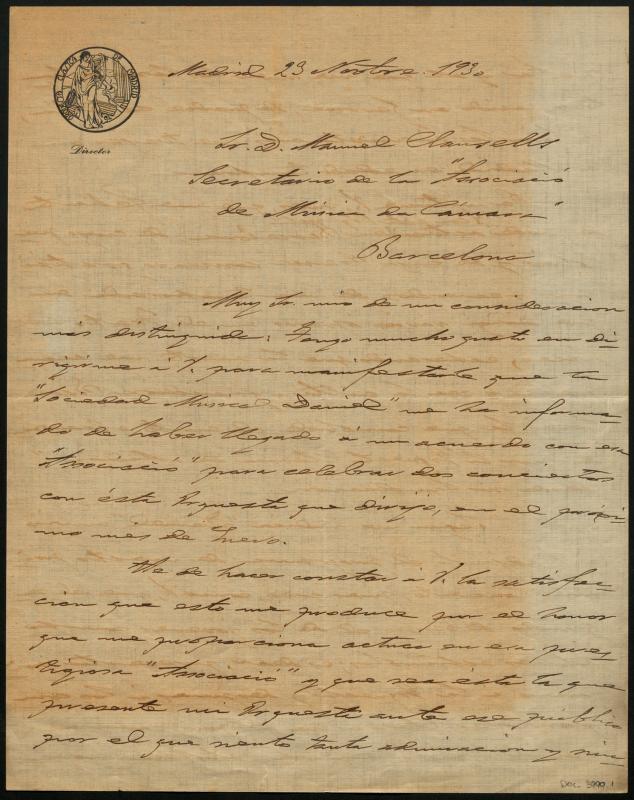 ORQUESTA CLASICA DE MADRID
Director
Madrid 23 Novbre. 1930
Sr. D. Manuel Clausells
Secretario de la "Associació
de Música da Cámara"
Barcelona
Muy Sr. mio de mi consideracion
más distinguida: Tengo mucho gusto en di-
rigirme á V. para manifestarle que la
"Sociedad Musical Daniel" me ha informa-
do de haber llegado á un acuerdo con esa
"Associació" para celebrar dos conciertos
con ésta Orquesta que dirijo, en el próxi-
mo mes de Enero.
He de hacer constar á V. la satisfac-
cion que esto me produce por el honor
que me proporciona actuar en esa pres-
tigiosa "Associació" y que sea ésta la que
presente mi Orquesta ante ese público
por el que siento tanta admiracion y sin-
DOC 3999.1